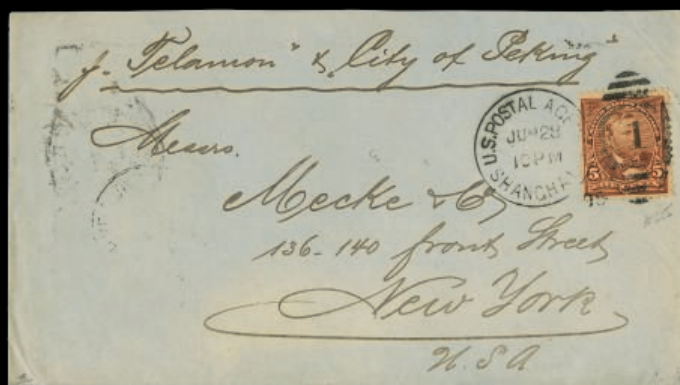 p. "Telamon" & "City of Peking"
U.S. POSTAL AG
JUN 28
10 PM
SHANGHAI
1
5 5
Messrs.
Mecke & Co
136-140 front Street
New York
U.S.A